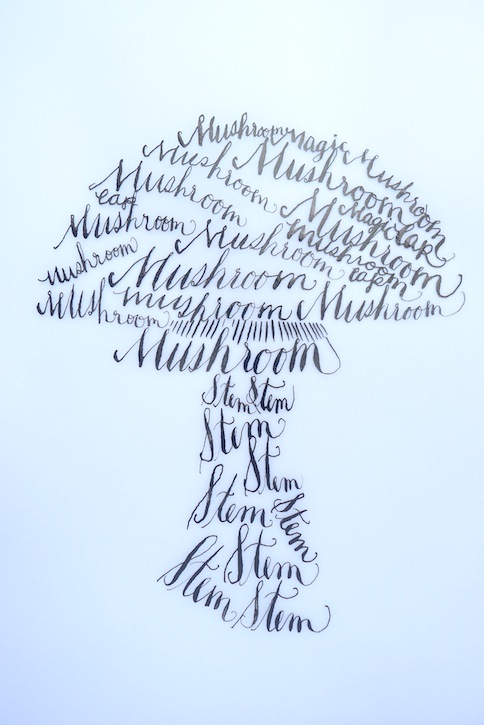 Mushroom Magic
Mushroom Mushroom Mushroom
Mushroom
Cap
Mushroom Magic Cap
Mushroom Mushroom mushroom Mushroom
Mushroom Mushroom cap
Mushroom mushroom Mushroom
Mushroom
Stem Stem
Stem
Stem
Stem Stem
Stem
Stem Stem